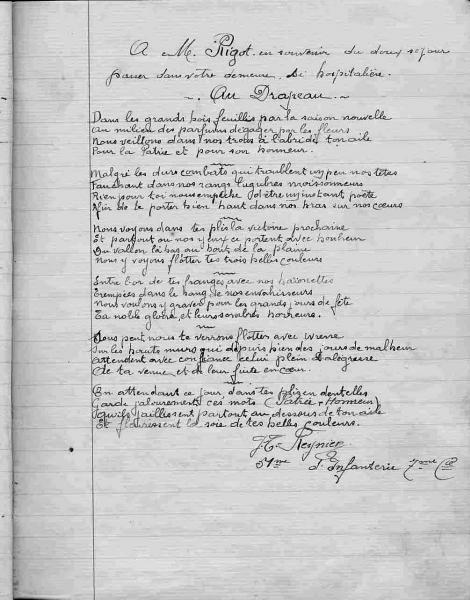 A M. Rigot en souvenir du doux séjour
passer dans votre demeure Si hospitalière.
Au Drapeau
Dans les grands bois feuillis par la saison nouvelle
Au milieu des parfums dégager par les fleurs
Nous veillons dans nos trous à l'abri de ton aile
Pour la Patrie et pour son honneur.
Malgré les durs combats qui troublent un peu nos têtes
Fauchant dans nos rangs lugubres moissonneurs
Rien pour toi nous empêche d'être un instant poète
Afin de te porter bien haut dans nos bras sur nos cœurs
Nous voyons dans tes plis la victoire prochaine
Et partout où nos yeux se portent avec bonheur
Du vallon là bas au bout de la plaine
Nous y voyons flotter tes trois belles couleurs
Entre l'or de tes franges avec nos baïonnettes
Trempées dans le sang de nos envahisseurs
Nous voulons y graver pour les grands jours de fête
Ta noble gloire et leurs sombres horreurs.
Sous peu nous te verrons flotter avec ivresse
Sur les hauts murs qui depuis bien des jours de malheur
Attendent avec confiance celui plein d'allégresse
De ta venue et de leur fuite en cœur.
En attendant ce jour dans tes plis en dentelles
Garde jalousement ces mots (Patrie + Honneur)
Qu'ils jaillissent partout au dessous de ton aile
Et fleurissent la soie de tes belles couleurs.
Reynier
51me d'Infanterie 7me Cie